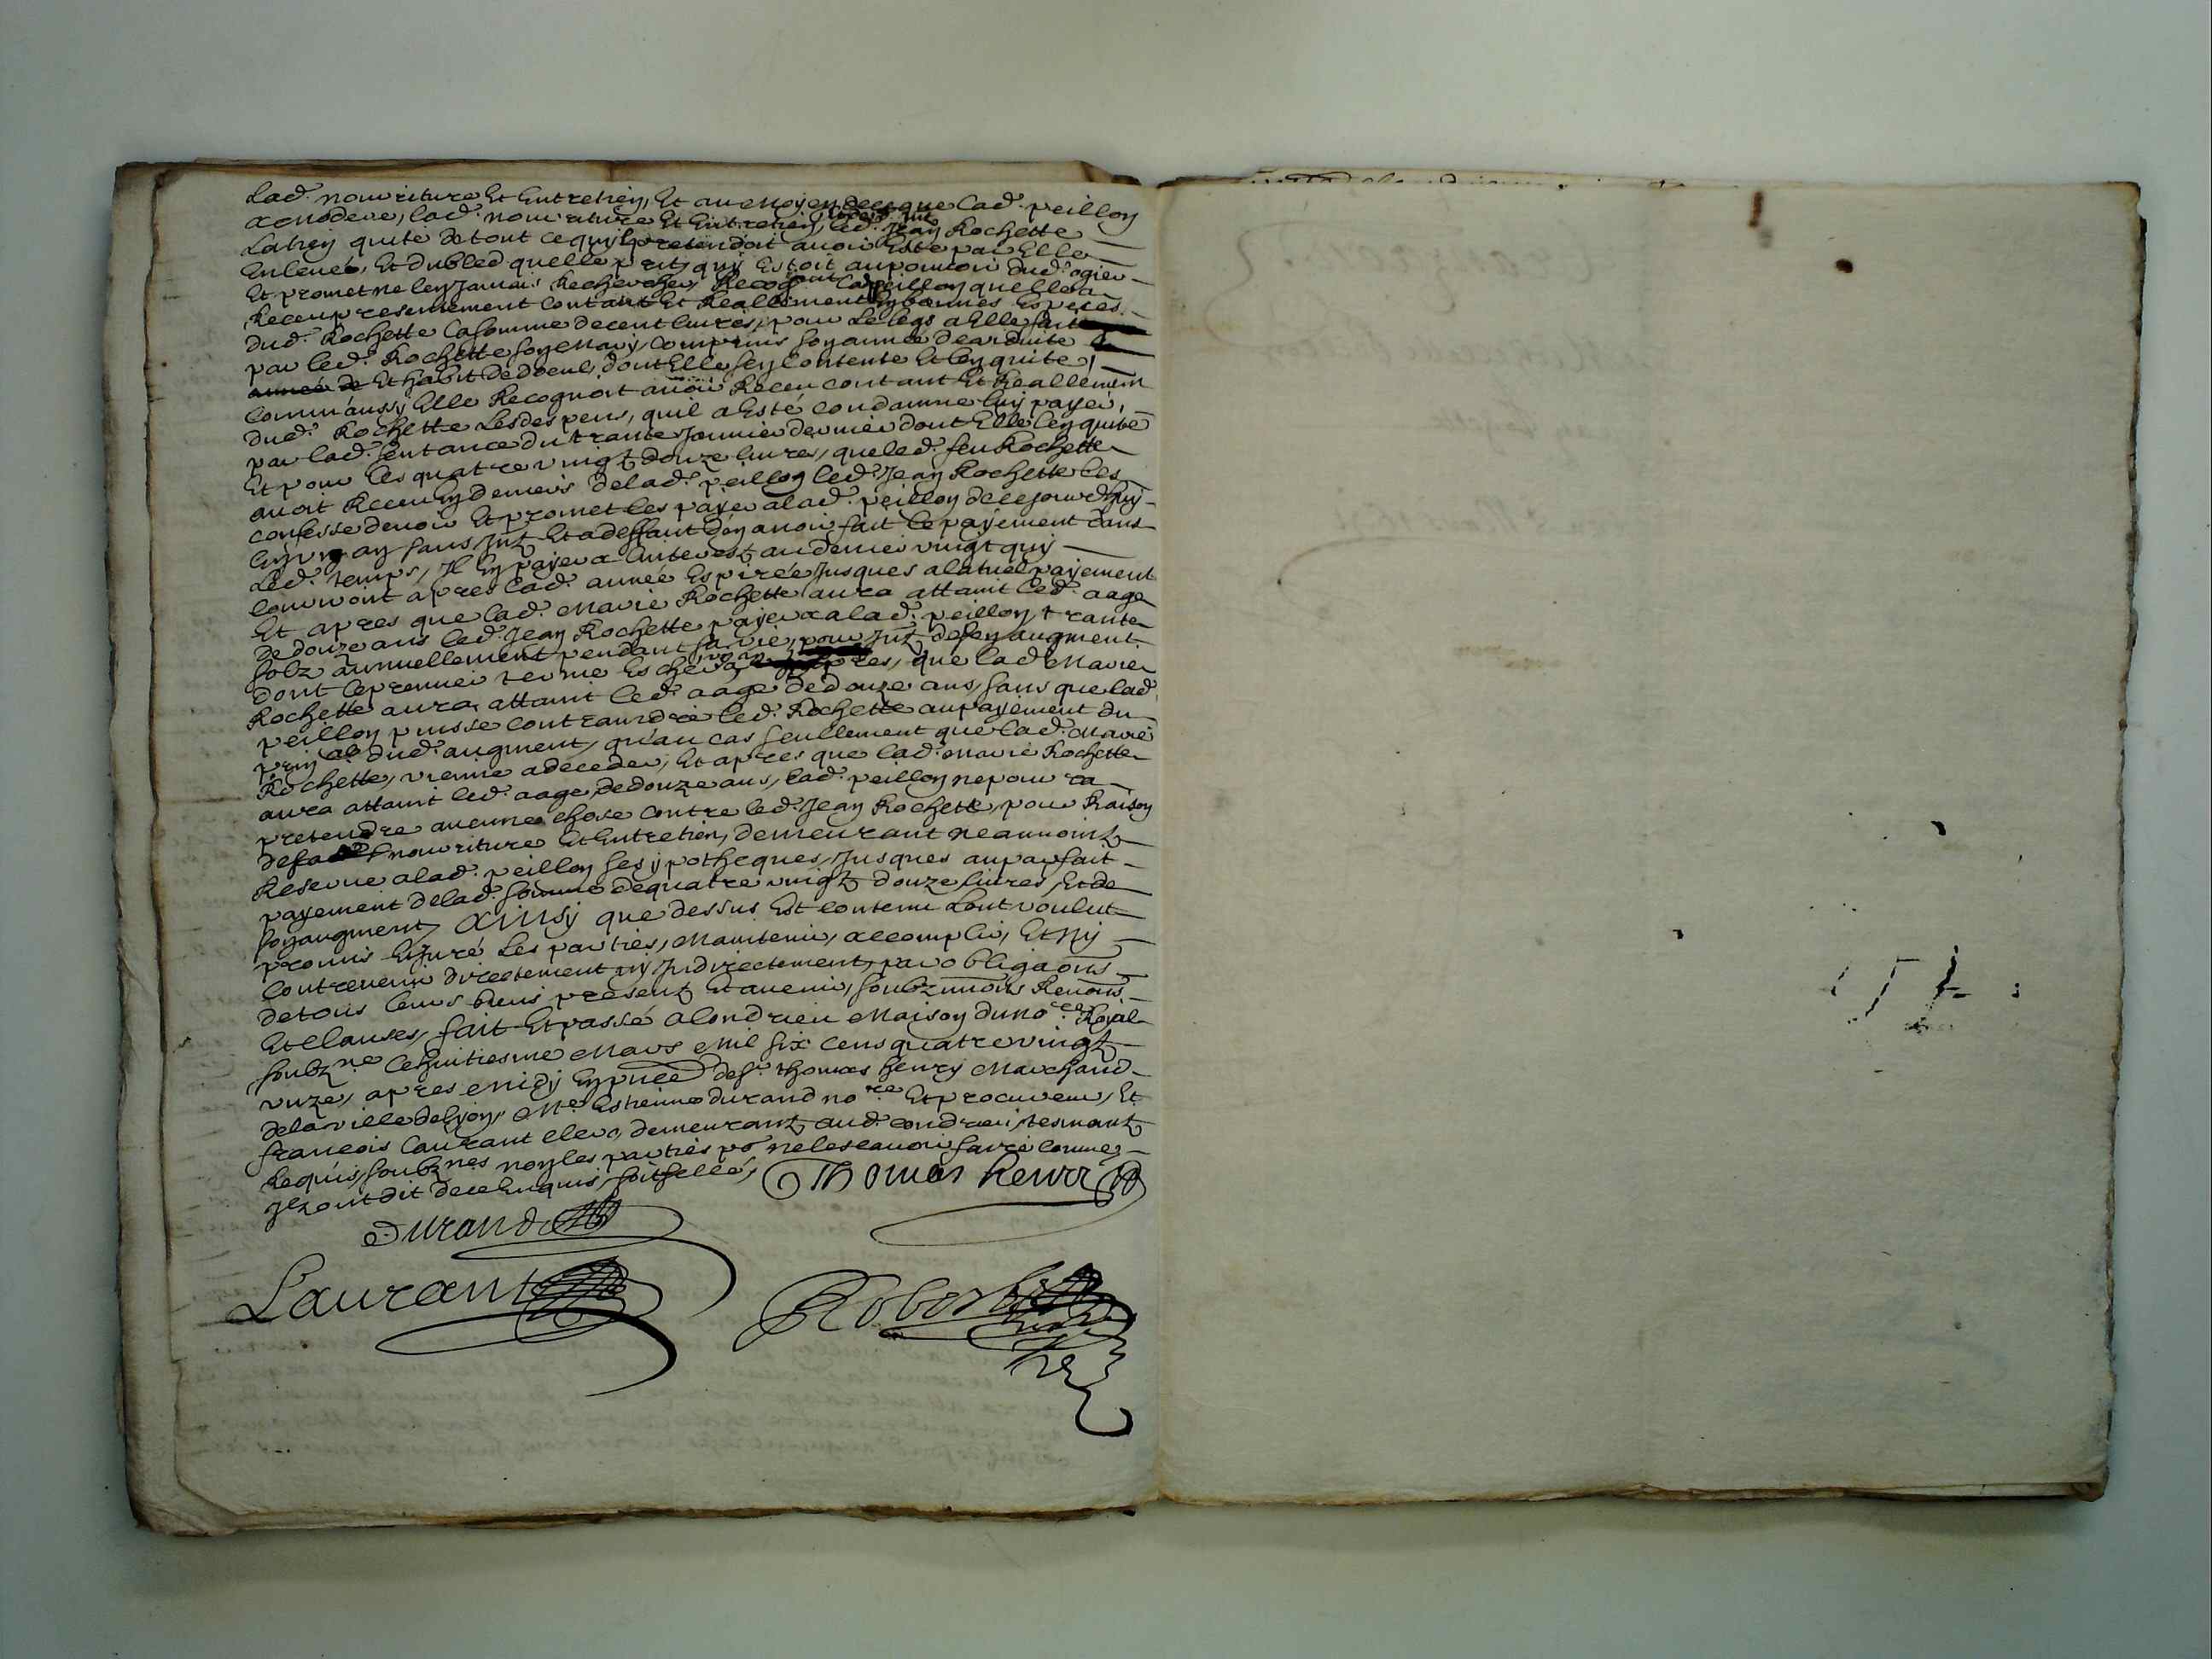 Lad. nourriture Et Entretien, Et au moyen de ce que lad. peillon
a modere, lad. nourriture Et Entretien, led. Jean Rochette
La tien quite de tout ce quil pretendoit avoir Esté par Elle
Enlevée, Et du bled quelle prit, quy Estoit au pouvoir dud. ogier
Et promet ne len Jamais Rechercher, Recog lad. peillon quelle a
Receu presentement contant Et Reallement En bonnes Especes
dud. Rochette la somme de cent livres, pour Le legs a Elle fait
par led. Rochette son Mary, comprins son année de viduite
année de Et habit de deoeul, dont Elle sen Contente Et len quite,
Comm'aussy Elle Recognoit avoir Receu contant Et Reallement
dud. Rochette Les despens, quil a Esté condamné luy payer,
par lad. sentance du trante Janvier dernier dont Elle len quitte
Et pour les quatre vingt douze livres, que led. feu Rochette
avoit Receu En deniers de lad. peillon led. Jean Rochette les
confesse devoir Et promet les payer a lad. peillon de ce jourdhuy
En un an sans Intz Et a deffaut d'en avoir fait le payement dans
led. temps, Il En payera linterest au denier vingt quy
courront apres lad. année Espirée Jusques a latuel payement
Et apres que lad. Marie Rochette aura attaint led. aage
de douze ans led. Jean Rochette payera a lad. peillon, trante
solz annuellement pendant sa vie, pour Intz de son augment
dont le premier terme Eschera apres, que lad. Marie
Rochette aura attaint led. aage de douze ans, sans que lad.
peillon puisse contraindre led. Rochette au payement du
prin al dud. augment, qu'au cas seullement que lad. Marie
Rochette, vienne a deceder, Et apres que lad. Marie Rochette
aura attaint led. aage de douze ans, lad. peillon ne pourra
pretendre aucune chose contre led. Jean Rochette, pour Raison
de sa nourriture Et Entretien, demeurant neanmointz
Reserve a lad. peillon ses ypotheques, Jusques au parfait
payement de lad. somme de quatre vingtz douze livres, Et de
son augment, Ainsy que dessus Est contenu L'ont voulut
promis Et Juré les parties, Maintenir, accomplir, Et ny
contrevenir directement ny Indirectement, par obligaons
de tous leurs biens presentz Et avenir, soubzmions Renons
Et clauses, fait Et passé a Condrieu Maison du nore Royal
soubzne le huitiesme Mars Mil six cens quatre vingtz
unze, apres Midy En pnce de sr. thomas henry Marchand
de la ville de lyon, Me Estienne durand nore Et procureur, Et
francois laurant clerc, demeurantz aud. condrieu, tesmoingz
Requis, soubznes non les parties po. ne le scavoir faire comme
Ilz ont dit de ce Enquis, soit sellé,
Thomas henri
Durand
Laurant
Robert